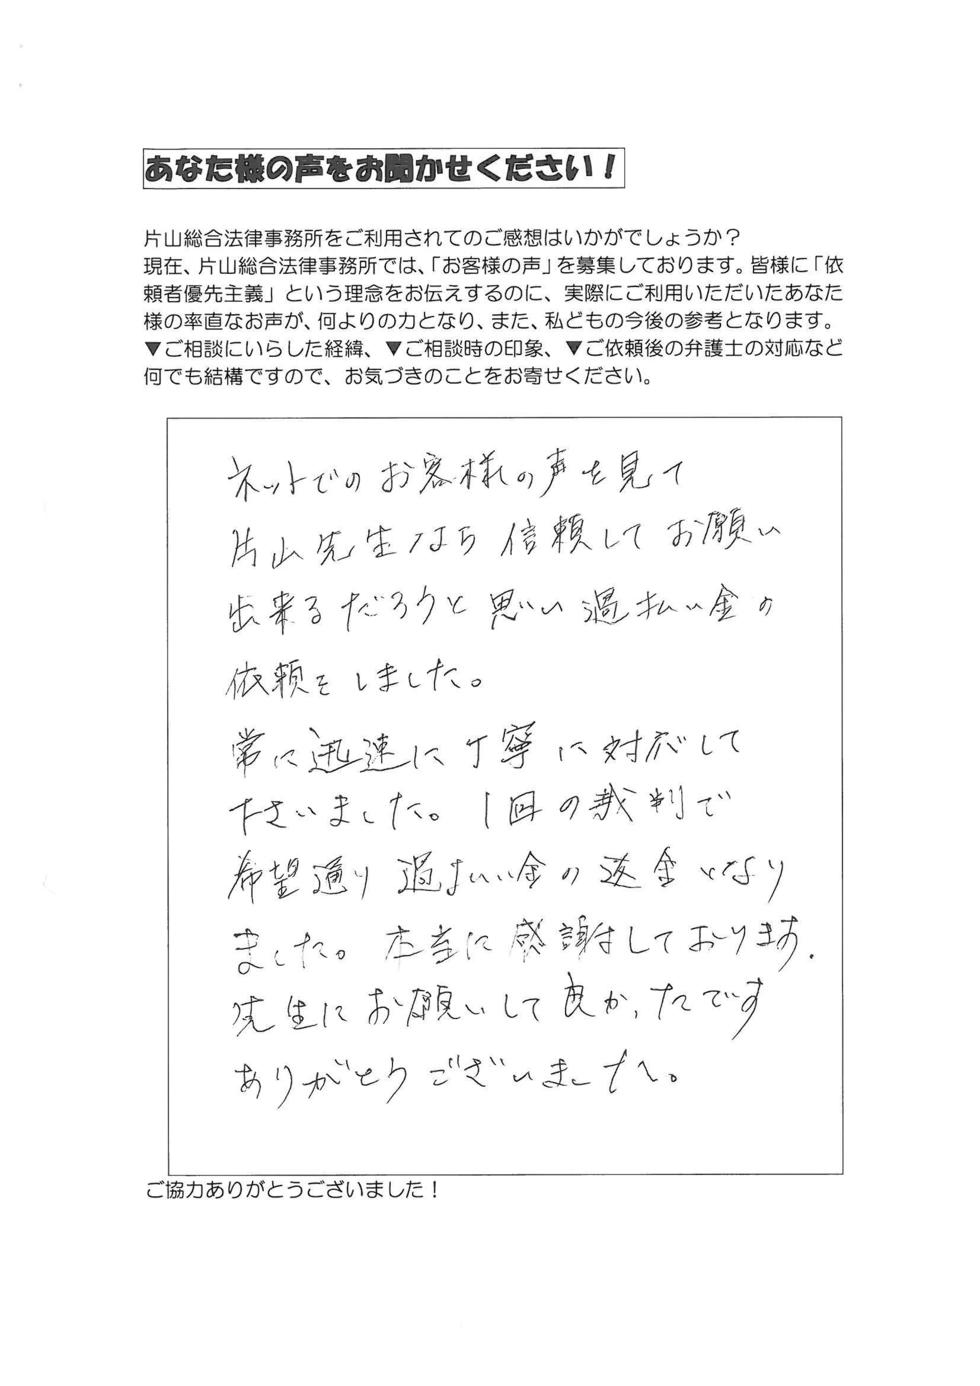 あなた様の声をお聞かせください！
片山総合法律事務所をご利用されてのご感想はいかがでしょうか？
現在、片山総合法律事務所では、「お客様の声」を募集しております。皆様に「依
頼者優先主義」という理念をお伝えするのに、実際にご利用いただいたあなた
様の率直なお声が、何よりの力となり、また、私どもの今後の参考となります。
▼ご相談にいらした経緯、▼ご相談時の印象、▼ご依頼後の弁護士の対応など
何でも結構ですので、お気づきのことをお寄せください。
ネットでのお客様の声を見て
片山先生なら信頼してお願い
出来るだろうと思い過払い金の
依頼をしました。
常に迅速に丁寧に対応して
下さいました。1回の裁判で
希望通り過払い金の返金となり
ました。本当に感謝しております.
先生にお願いして良かったです
ありがとうございました。
ご協力ありがとうございました！